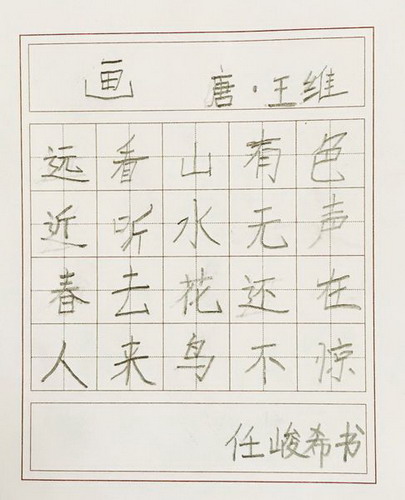 画
唐·王维
远看山有色
近听水无声
春去花还在
人来鸟不惊
任峻希书